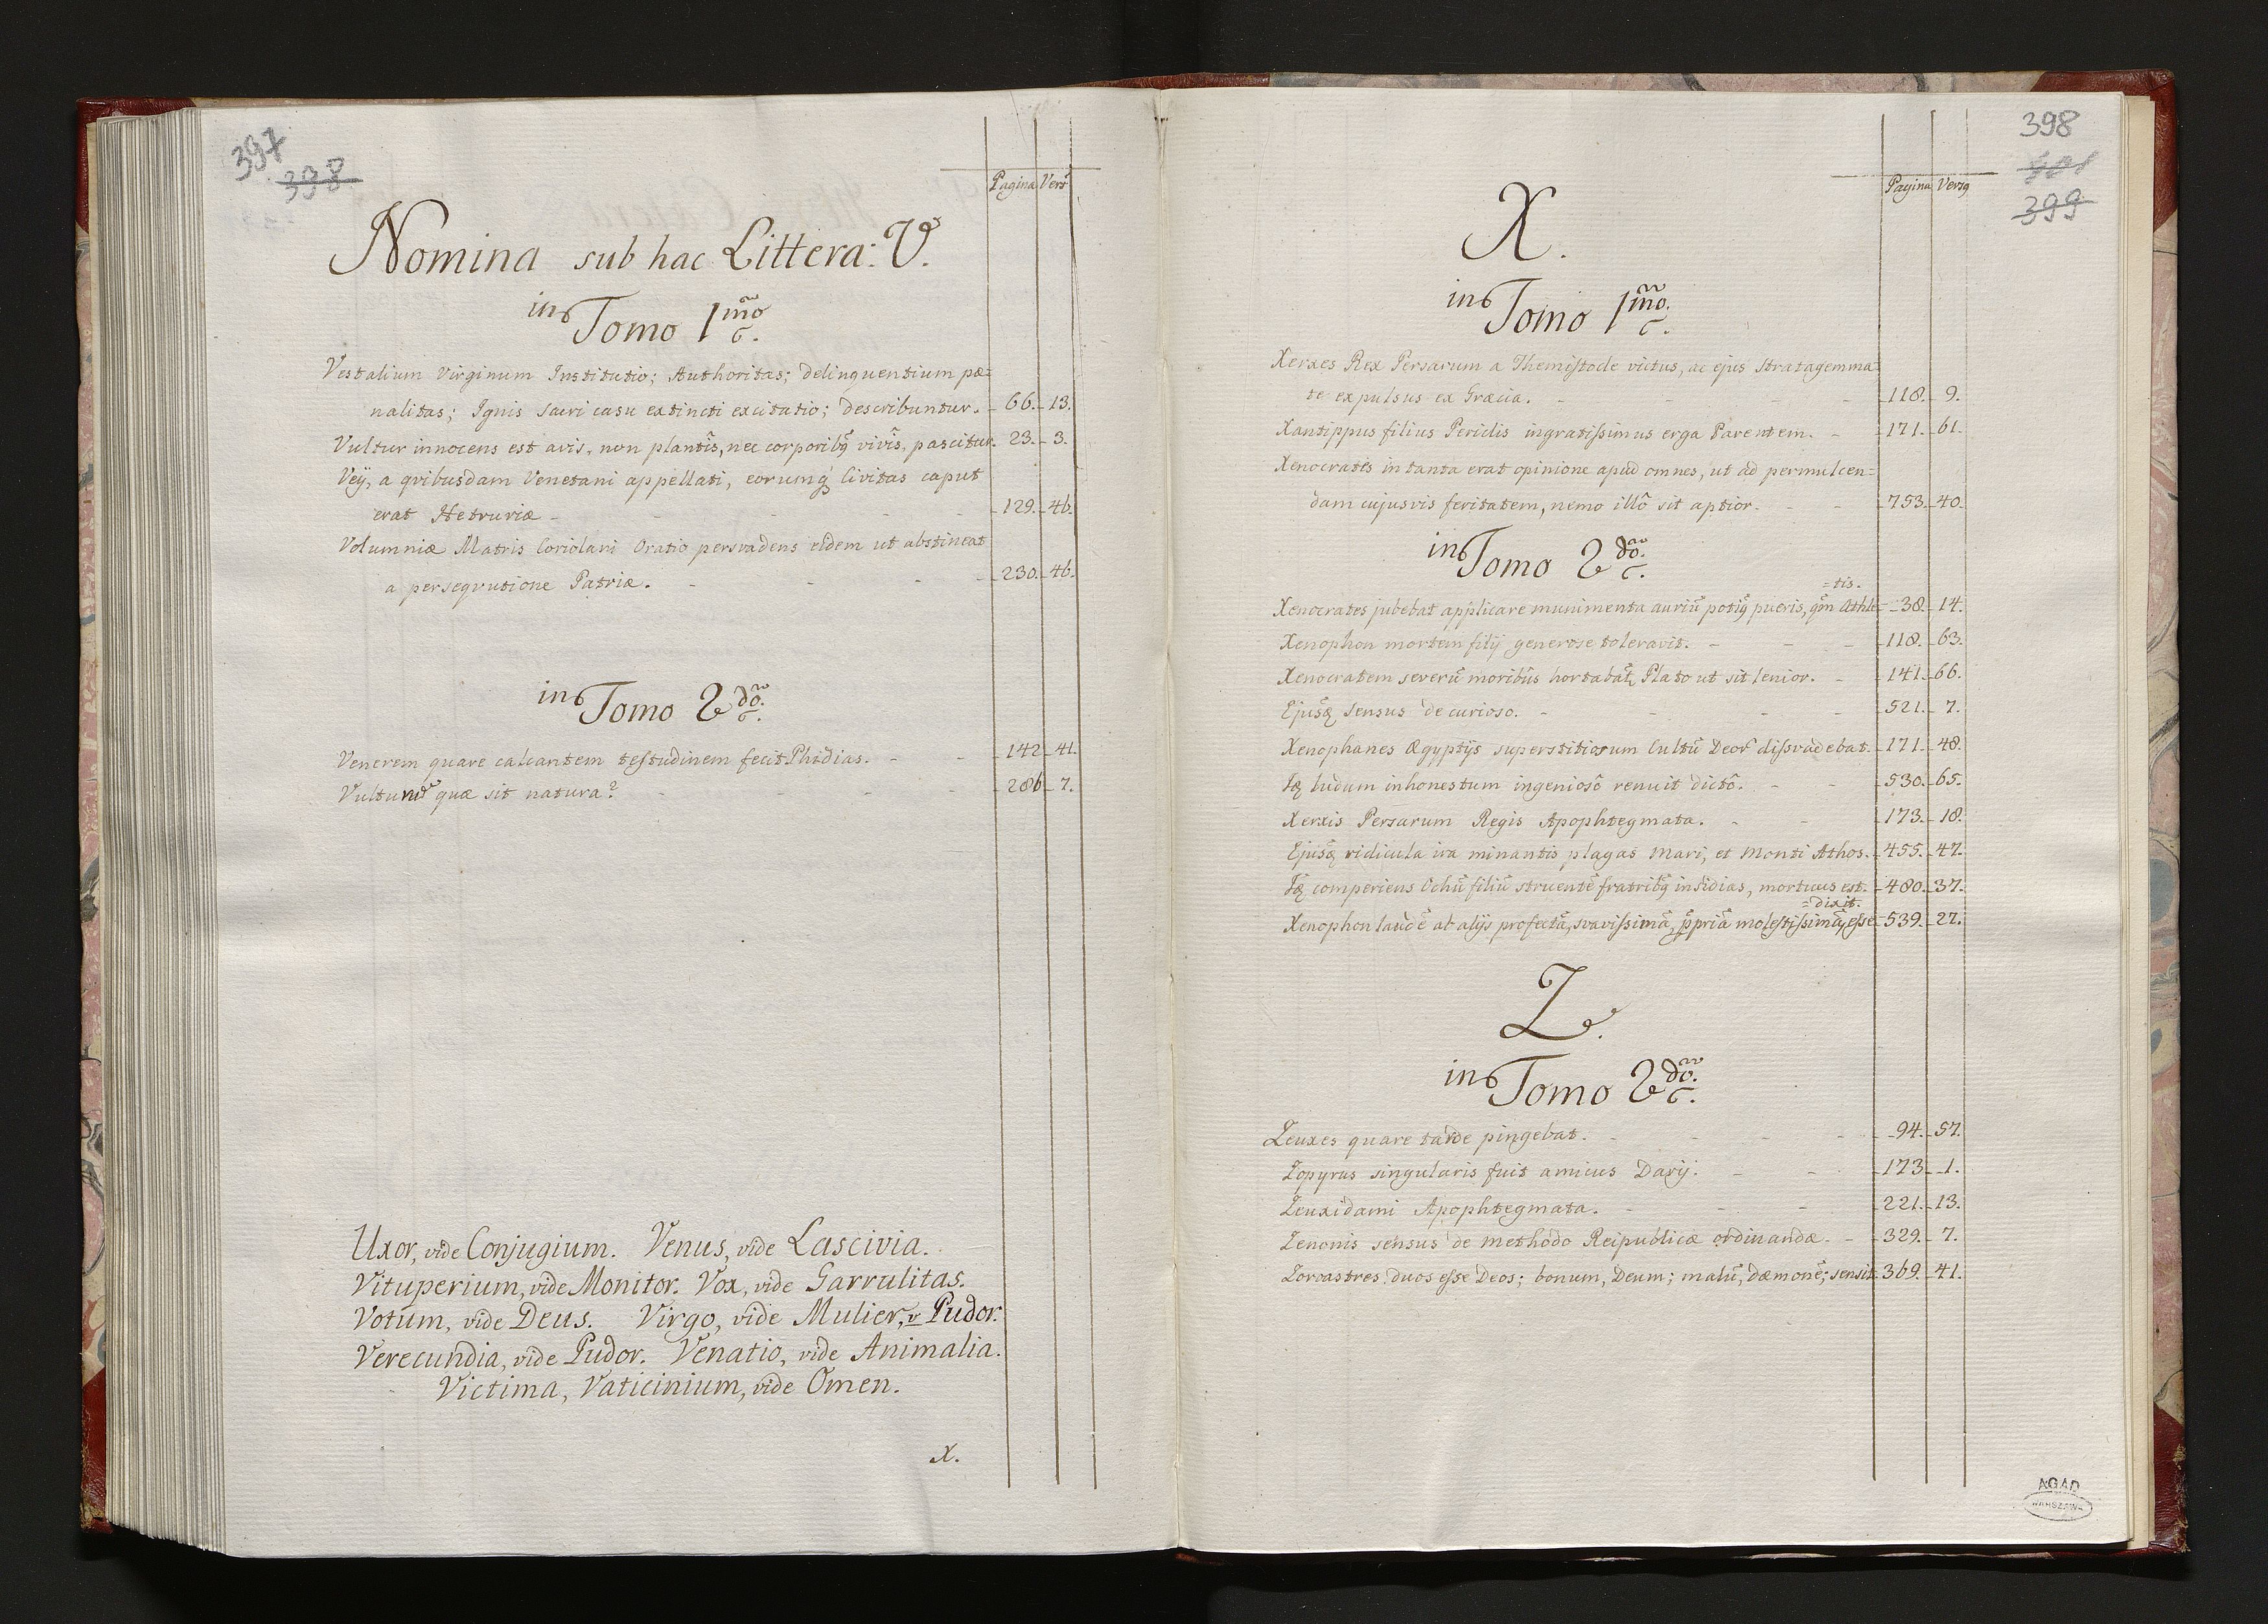 397
398
Pagina Vers̃
Nomina sub hac Littera: V.
in Tomo 1mo.
Vestalium Virginum Institutio; Authoritas; delinquentium pæ=
nalitas; Ignis sacri casu extincti excitatio; describuntur. - 66. - 13.
Vultur innocens est avis, non plantis, nec corporibq vivis, pascitur. 23. - 3.
Veÿ, a qvibusdam Venetani appellati, eorumq Civitas caput
erat Hetruriæ - - - - - 129. - 46.
Volumniæ Matris Coriolani Oratio persvadens eidem ut abstineat
a perseqvutione Patriæ. - - - - 230. - 46.
in Tomo 2do.
Venerem quare calcantem testudinem fecit Phidias. - - - 142 - 41.
Vulturũ quæ sit natura? - - - - - 286 - 7.
Uxor, vide Conjugium. Venus, vide Lascivia.
Vituperium, vide Monitor. Vox, vide Garrulitas.
Votum, vide Deus. Virgo, vide Mulier, v Pudor.
Verecundia, vide Pudor. Venatio, vide Animalia.
Victima, Vaticinium, vide Omen.
X.
398
401
399
Pagina Versq
X.
in Tomo 1mo.
Xerxes Rex Persarum a Themistocle victus, ac ejus stratagemma=
te expulsus ex Græcia. - - - - - 118. - 9.
Xantippus filius Periclis ingratissimus erga Parentem. - - 171. - 61.
Xenocrates in tanta erat opinione apud omnes, ut ad permulcen=
dam cujusvis feritatem, nemo illô sit aptior. - - - 753. - 40.
in Tomo 2do.
=tis.
Xenocrates jubebat applicare munimenta auriũ potiq pueris, qm̃ Athle= - 38. - 14.
Xenophon mortem filÿ generose toleravit. - - - - 118. - 63.
Xenocratem severũ moribus hortabat Plato ut sit lenior. - - 141. - 66.
Ejusq sensus de curioso. - - - - - 521. - 7.
Xenophanes Ægyptÿs superstitiosum Cultũ Deor̃ dissvadebat. - 171. - 48.
Idq ludum inhonestum ingeniosô renuit dictô. - - - 530. - 65.
Xerxis Persarum Regis Apophtegmata. - - - 173. - 18.
Ejusq ridicula ira minantis plagas Mari, et Monti Athos. - 455. - 47.
Idq comperiens Ochũ filiũ struentẽ fratribq insidias, mortuus est. - 480. - 37.
=dixit.
Xenophon laudẽ ab alÿs profectã, svavissimã, ppriã molestissimã, esse - 539. - 27.
Z.
in Tomo 2do.
Zeuxes quare tarde pingebat. - - - - - 94. - 57.
Zopyrus singularis fuit amicus Darÿ. - - - 173 - 1.
Zeuxidami Apophtegmata. - - - - 221. - 13.
Zenonis sensus de methodo Reipublicæ ordinandæ. - - 329. - 7.
Zoroastres, duos esse Deos; bonum, Deum; malũ, dæmonẽ; sensit. 369. - 41.
AGAD
WARSZAWA